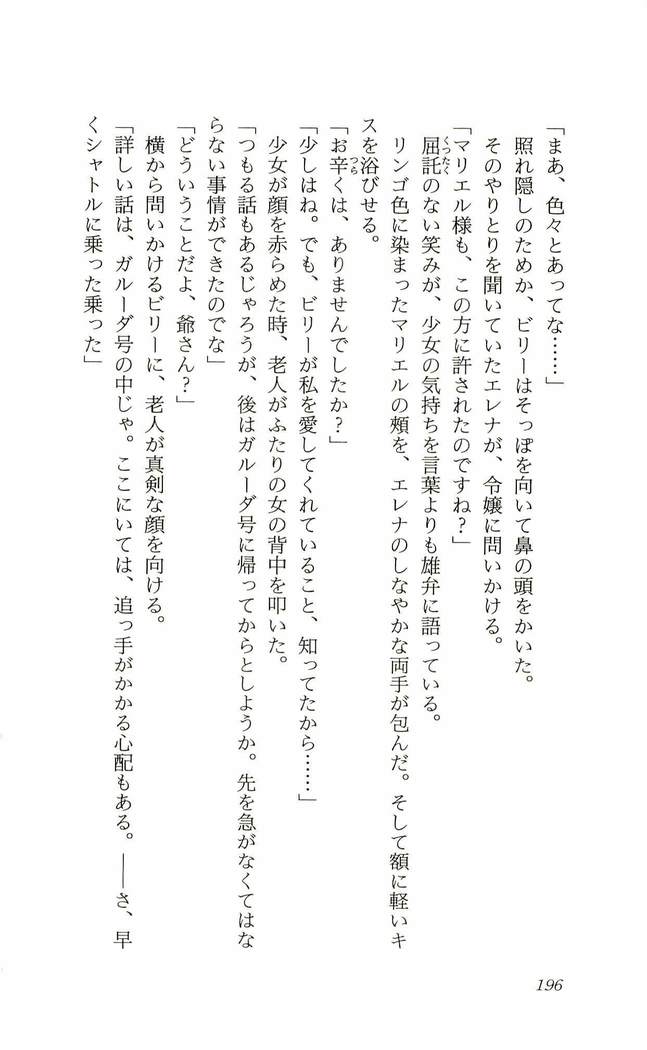 「まあ、色々とあってな……」
照れ隠しのためか、ビリーはそっぽを向いて鼻の頭をかいた。
そのやりとりを聞いていたエレナが、令嬢に問いかける。
「マリエル様も、この方に許されたのですね?」
屈託のない笑みが、少女の気持ちを言葉よりも雄弁に語っている。
リンゴ色に染まったマリエルの頬を、エレナのしなやかな両手が包んだ。そして額に軽いキ
スを浴びせる。
「お辛くは、ありませんでしたか?」
「少しはね。でも、ビリーが私を愛してくれていること、知ってたから……」
少女が顔を赤らめた時、老人がふたりの女の背中を叩いた。
「つもる話もあるじゃろうが、後はガルーダ号に帰ってからとしようか。先を急がなくてはな
らない事情ができたのでな」
「どういうことだよ、爺さん?」
横から問いかけるビリーに、老人が真剣な顔を向ける。
「詳しい話は、ガルーダ号の中じゃ。ここにいては、追っ手がかかる心配もある。――さ、早
くシャトルに乗った乗った」
196